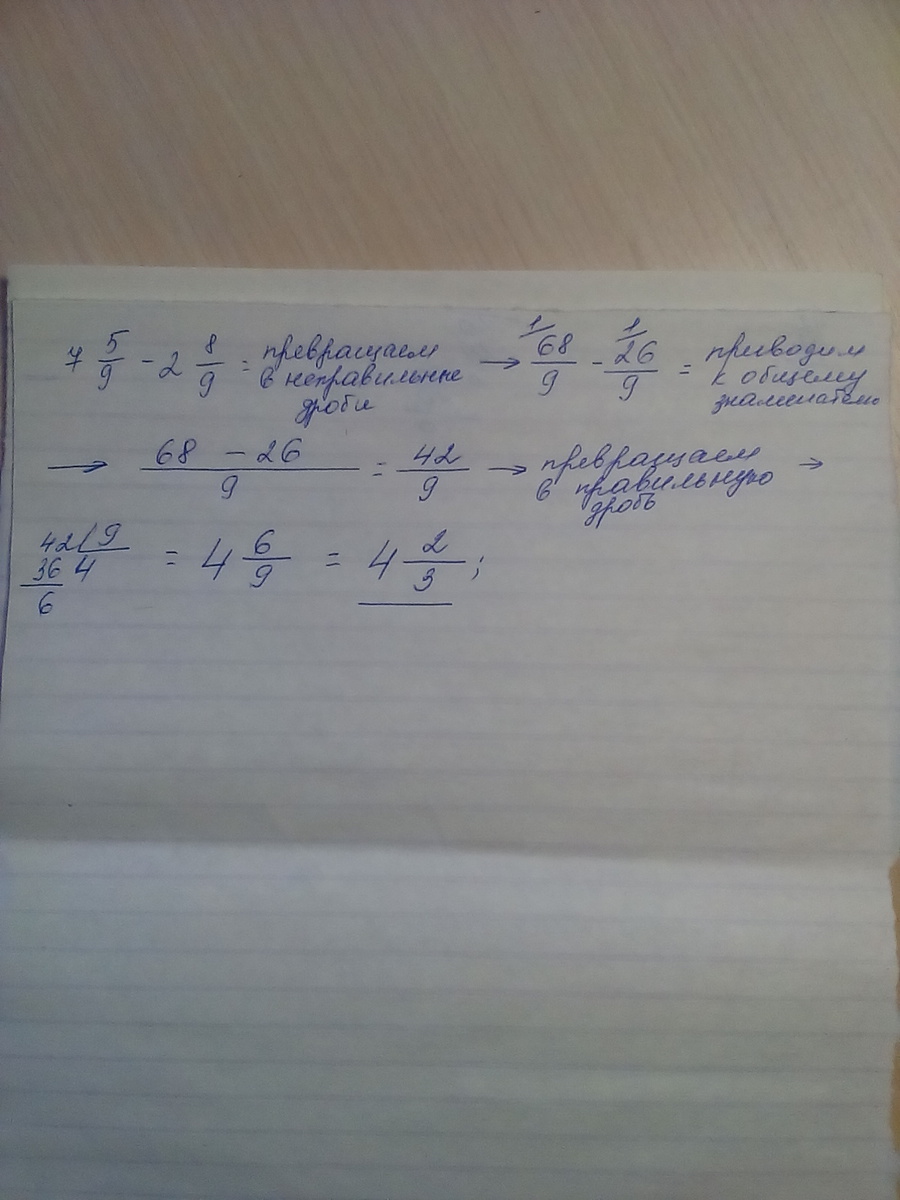 7 5/9 - 2 8/9 = превращаем в неправильные дроби → 1/ 68/9 - 1/ 26/9 = приводим к общему знаменателю
→ 68 - 26 / 9 = 42/9 → превращаем в правильную дробь →
42 | 9 = 4 6/9 = 4 2/3 ;
36 4
6